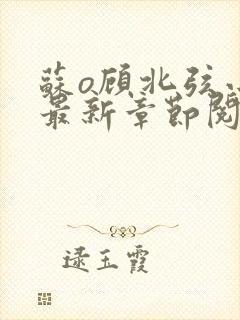 蘇o顾北弦小
最新章節閱
逯玉霞